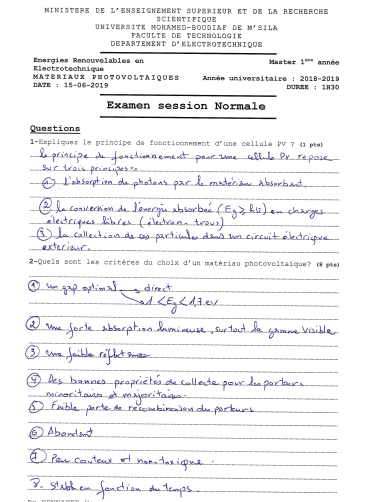 MINISTERE DE L'ENSEIGNEMENT SUPERIEUR ET DE LA RECHERCHE
SCIENTIFIQUE
UNIVERSITE MOHAMED-BOUDIAF DE M'SILA
FACULTE DE TECHNOLOGIE
DEPARTEMENT D'ELECTROTECHNIQUE
Energies Renouvelables en Electrotechnique
Master 1ère année
MATERIAUX PHOTOVOLTAIQUES
Année universitaire : 2018-2019
DATE : 15-06-2019
DUREE : 1H30
Examen session Normale
Questions
1-Expliquez le principe de fonctionnement d'une cellule PV ? (1 pts)
le principe de fonctionnement pour une cellule PV repose
sur trois principes:
① l'absorption de photons par le matériau absorbant.
② la conversion de l'énergie absorbée (Eg ≥ hν) en charges
électriques libres (électron-trous)
③ la collection de ces particules dans un circuit électrique
exterieur.
2-Quels sont les critères du choix d'un matériau photovoltaïque? (8 pts)
① un gap optimal → direct
→ 1 < Eg < 1,7 eV
② une forte absorption lumineuse, surtout la gamme visible
③ une faible réflectance
④ Des bonnes propriétés de collecte pour les porteurs
minoritaires et majoritaires.
⑤ Faible perte de recombinaison du porteurs
⑥ Abondant
⑦ Peu couteux et non-toxique.
8. Stable en fonction du temps.